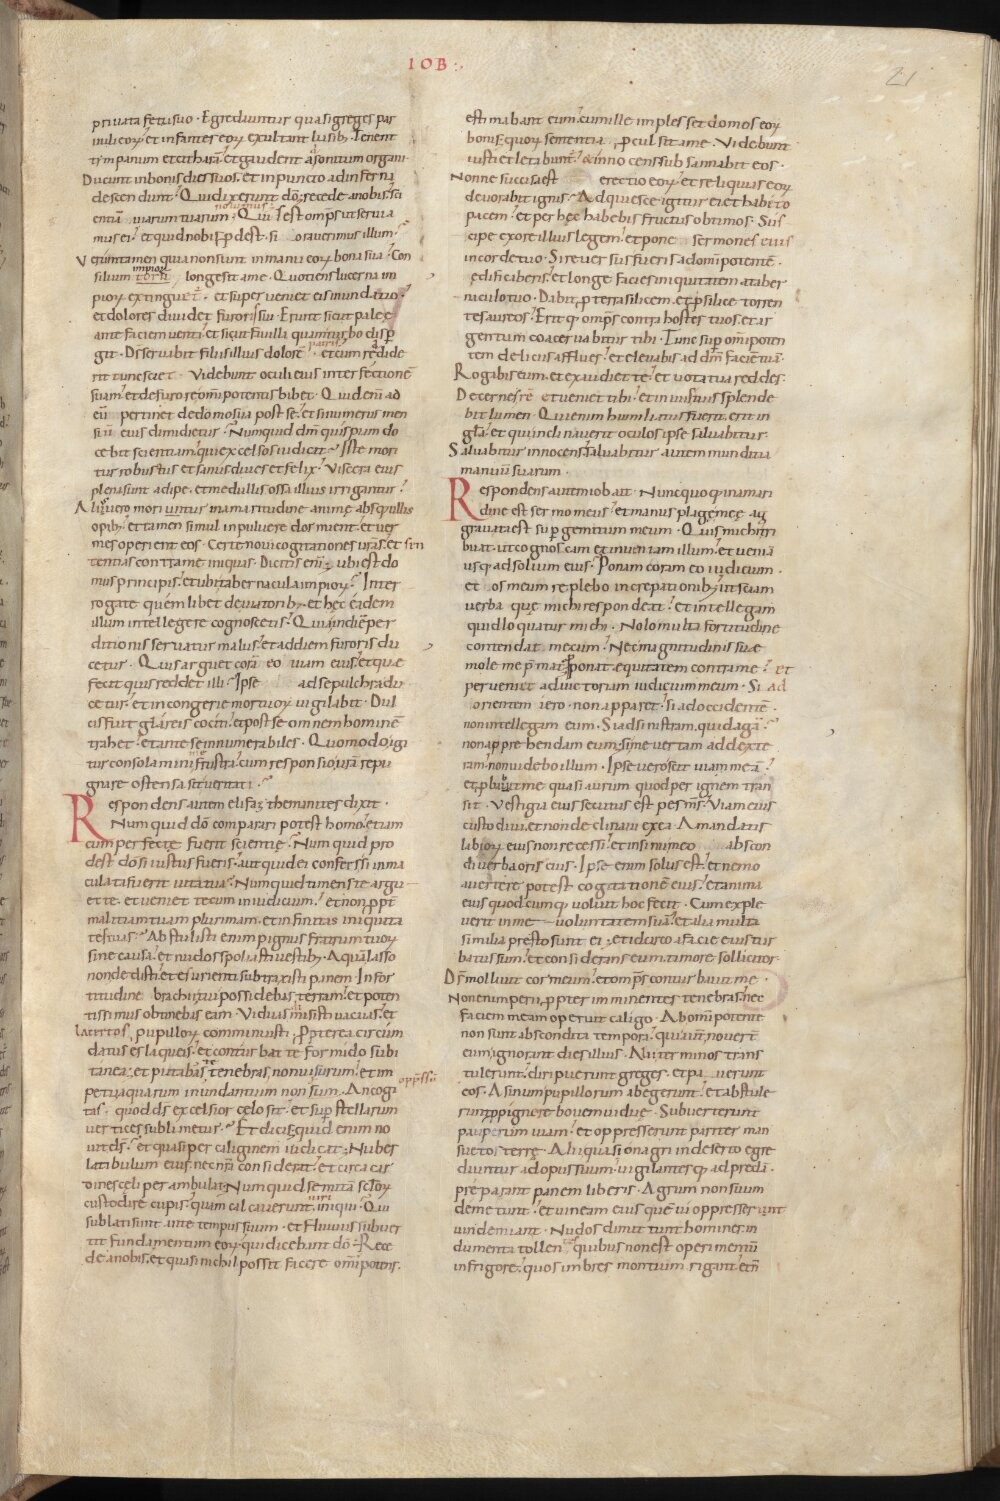 IOB
21
privata fetu suo · Egrediuntur quasi greges par
uuli eoꝝ et infantes eoꝝ exultant lusibꝫ Tenent
tympanum et citharā et gaudent ad sonitum organi ·
Ducunt in bonis dies suos et in puncto ad inferna
descendunt · Qui dixerunt dō recede a nobis sci
entiā uiarum tuarum nolumus · Quis est omps ut serviа
mus ei et quid nobis ꝓdest si orauerimus illum
Veruntamen quia non sunt in manu eoꝝ bona sua · Con
silium impioꝝ longe sit a me · Quotiens lucerna im
pioꝝ extinguet᷑ · et superveniet eis inundatio
et dolores dividet furoris sui · Erunt sicut paleę
ante faciem venti et sicut fauilla quam turbo disꝑ
git · Ds servabit filiis illius dolorē patris et cum reddide
rit tunc sciet · Videbunt oculi eius interfectionē
suam et de furore omipotentis bibet · Quid enī ad
eū pertinet de domo sua post se et si numerus men
siū eius dimidietur · Numquid dm quispiam do
cebit scientiam qui excelsos iudicat Iste mori
tur robustus et sanus dives et felix Viscera eius
plena sunt adipe et medullis ossa illius irrigantur
Alius uero moritur in amaritudine animę absq; ullis
opibꝫ et tamen simul in pulvere dormient et ver
mes operient eos · Certe novi cogitationes urās et sen
tentias contra me iniquas · Dicitis enī ubi est do
mus principis et ubi tabernacula impioꝝ · Inter
rogate quemlibet de viatoribꝫ et hęc eadem
illum intellegere cognoscetis · Quia in diē per
ditionis servatur malus et ad diem furoris du
cetur · Quis arguet corā eo viam eius et que
fecit quis reddet illi · Ipse ad sepulchra du
cetur et in congerie mortuoꝝ vigilabit · Dul
cis fuit glareis cociti et post se omnem hominē
trahet et ante se innumerabiles · Quomodo igi
tur consolamini me frustra cum responsio urā repu
gnare ostensa sit veritati
Respondens autem elifaz themanites dixit ·
Numquid dō comparari potest homo etiam
cum perfectę fuerit scientię · Num quid pro
dest dō si iustus fueris aut quid ei confers si inma
culata fuerit vita tua · Numquid timens te argu
et te et veniet tecum in iudicium et non ꝓpt
malitiam tuam plurimam et infinitas iniquita
tes tuas · Abstulisti enim pignus fratrum tuoꝝ
sine causa et nudos spoliasti vestibꝫ · Aquā lasso
non dedisti et esurienti subtraxisti panem In for
titudine brachii tui possidebas terram et poten
tissimus obtinebas eam · Viduas dimisisti vacuas et
lacertos pupilloꝝ comminuisti · Propterea circum
datus es laqueis et conturbat te formido subi
tanea et putabas te tenebras non visurum et im
petu aquarum inundantium non oppressū iri · An cogi
tas quod ds excelsior celo sit et suꝑ stellarum
vertices sublimetur · Et dicis quid enim no
vit ds et quasi per caliginem iudicat · Nubes
latibulum eius nec nrā considerat et circa car
dines celi perambulat · Numquid semitā seculoꝝ
custodire cupis quam calcaverunt viri iniqui · Qui
sublati sunt ante tempus suum et fluvius subver
tit fundamentum eoꝝ qui dicebant dō · Rece
de a nobis et quasi nichil possit facere omipotens
estimabant eum cum ille implesset domos eoꝝ
bonis quoꝝ sententia procul sit a me · Videbunt
iusti et letabunt᷑ et innocens subsannabit eos ·
Nonne succisa est erectio eoꝝ et reliquias eoꝝ
devorabit ignis · Adquiesce igitur ei et habeto
pacem et per hęc habebis fructus obtimos · Sus
cipe ex ore illius legem et pone sermones eius
in corde tuo · Si reversus fueris ad omipotentē
ędificaberis et longe facies iniquitatem a taber
naculo tuo · Dabit ꝓ terra silicem et ꝓ silice torren
tes aureos · Erit q; omps contra hostes tuos et ar
gentum coacervabitur tibi · Tunc super omipoten
tem deliciis afflues et elevabis ad dm faciē tuā ·
Rogabis eum et exaudiet te et vota tua reddes ·
Decernes rē et veniet tibi et in viis tuis splende
bit lumen · Qui enim humiliatus fuerit erit in
glā et qui inclinaverit oculos ipse salvabitur
Salvabitur innocens salvabitur autem munditia
manuum suarum ·
Respondens autem iob ait · Nunc quoq; in amari
dine est sermo meus et manus plagę meę ag
gravata est suꝑ gemitum meum · Quis michi tri
buat ut cognoscam et inveniam illum et veniā
usq; ad solium eius Ponam coram eo iudicium ·
et os meum replebo increpationibꝫ ut sciam
verba que michi respondeat et intellegam
quid loquatur michi · Nolo multa fortitudine
contendat mecum Nec magnitudinis suę
mole me p̄mat ꝓponat equitatem contra me et
perveniet ad victoriam iudicium meum · Si ad
orientem iero non apparet si ad occidentē
non intellegam eum · Si ad sinistram quid agā
non apprehendam eum si me vertam ad dexte
ram non videbo illum · Ipse vero scit viam meā
et ꝓbavit me quasi aurum quod per ignem tran
sit · Vestigia eius secutus est pes ms Viam eius
custodivi et non declinavi ex ea · A mandatis
labioꝝ eius non recessi et in sinu meo abscon
di verba oris eius · Ipse enim solus est et nemo
avertere potest cogitationē eius et anima
eius quodcumq; voluit hoc fecit · Cum exple
verit in me voluntatem suā et alia multa
similia presto sunt ei et idcirco a facie eius tur
batus sum et considerans eum timore sollicitor ·
Ds mollivit cor meum et omps conturbavit me ·
Non enim perii ꝓpter imminentes tenebras nec
faciem meam operuit caligo · Ab omipotente
non sunt abscondita tempora qui autē novert̄
eum ignorant dies illius · Alii terminos trans
tulerunt diripuerunt greges et paverunt
eos · Asinum pupillorum abegerunt et abstule
runt ꝓ pignore bovem viduę · Subverterunt
pauperum viam et oppresserunt pariter man
suetos terrę · Alii quasi onagri in deserto egre
diuntur ad opus suum vigilantesq; ad predā
preparant panem liberis · Agrum non suum
demetunt et vineam eius quē vi oppresserunt
vindemiant · Nudos dimittunt homines in
dumenta tollentes quibus non est operimentū
in frigore quos imbres montium rigant et n̄